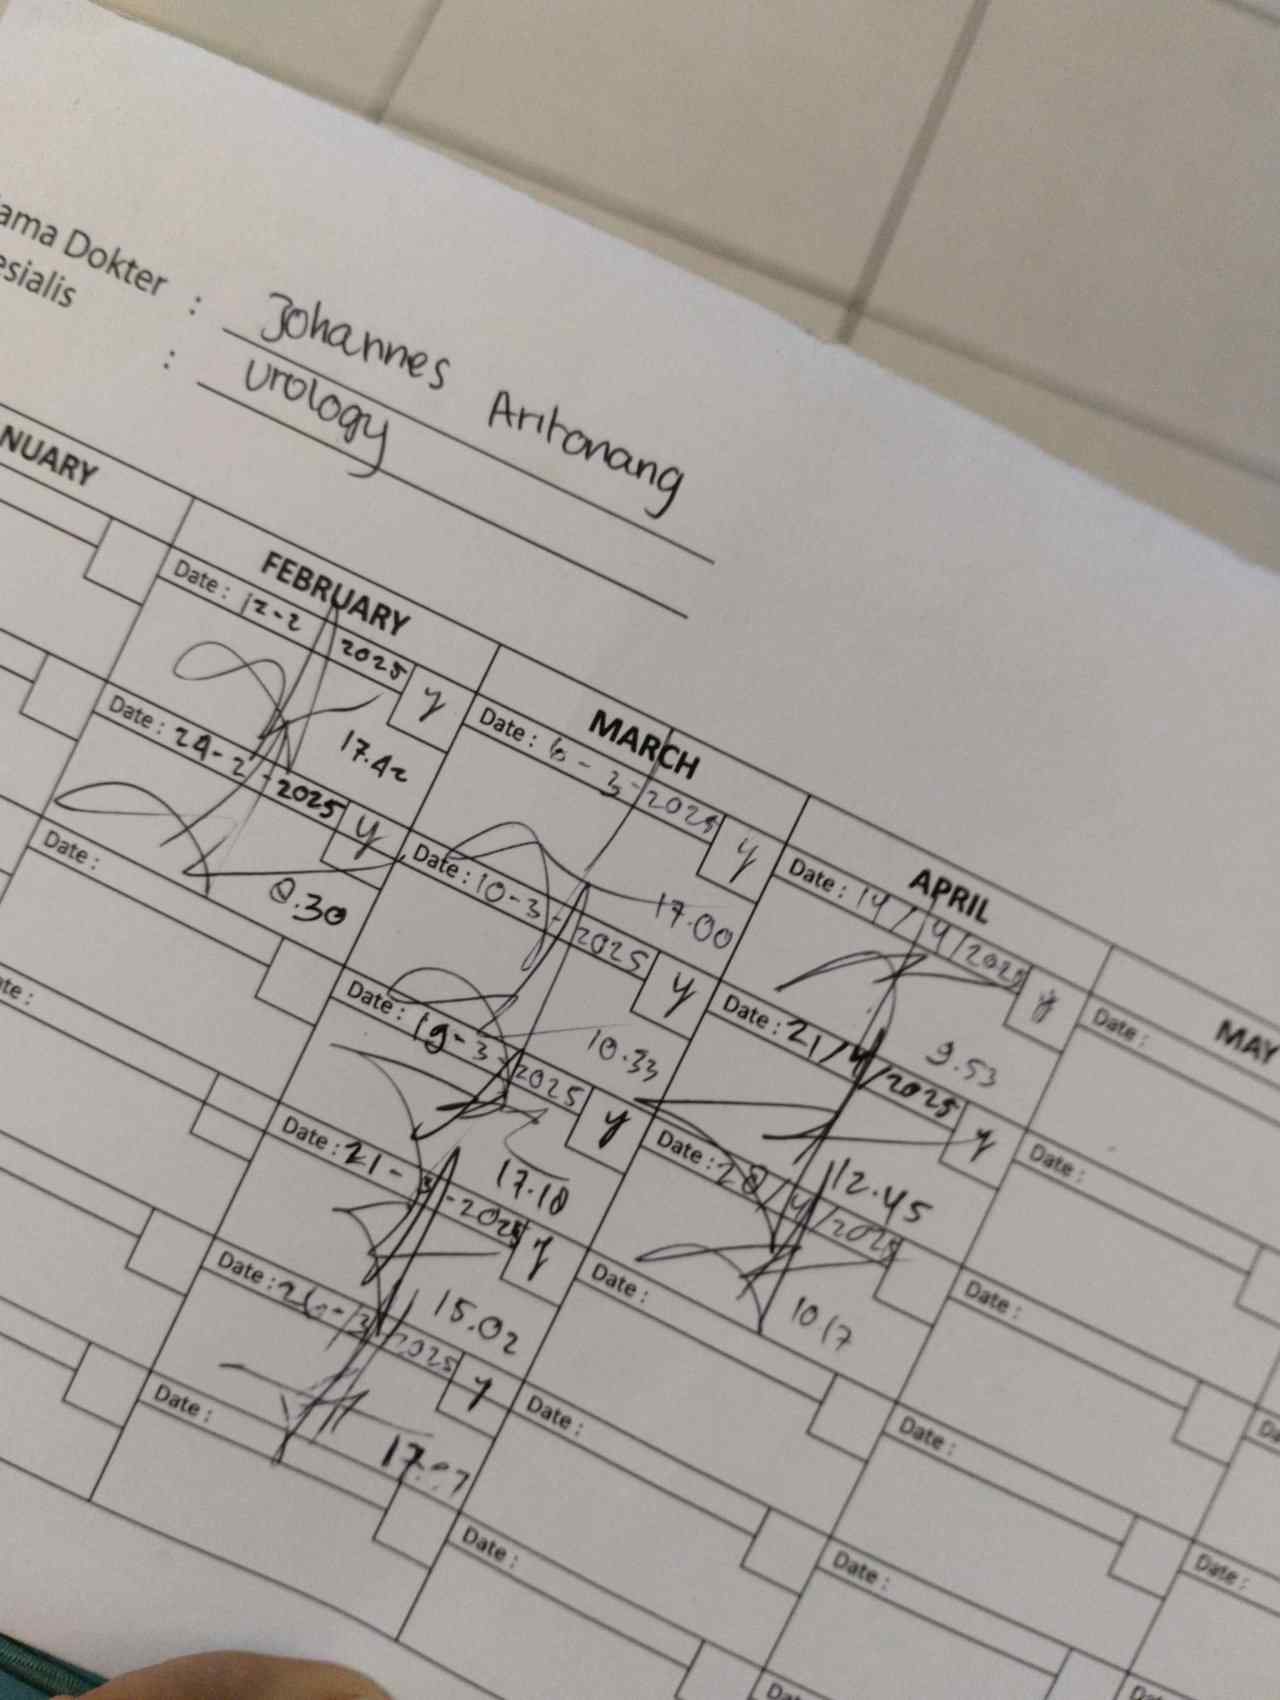 ama Dokter : Johannes Aritonang
esialis : Urology
NUARY FEBRUARY MARCH APRIL MAY
Date : 12-2 2025 y
17.42
Date : 24-2-2025 y
8.30
Date :
te :
Date : 6-3-2025 y
17.00
Date : 10-3-2025 y
10.33
Date : 19-3-2025 y
17.18
Date : 21-3-2025 y
15.02
Date : 26-/3/2025 y
Date :
Date : 14/4/2025 y
9.53
Date : 21/4/2025 y
12.45
Date : 28/4/2025
10 17
Date :
Date :
Date :
Date :
Date :
Date :
Date :
Date :
Date :
Date :
Da
Date :
Da